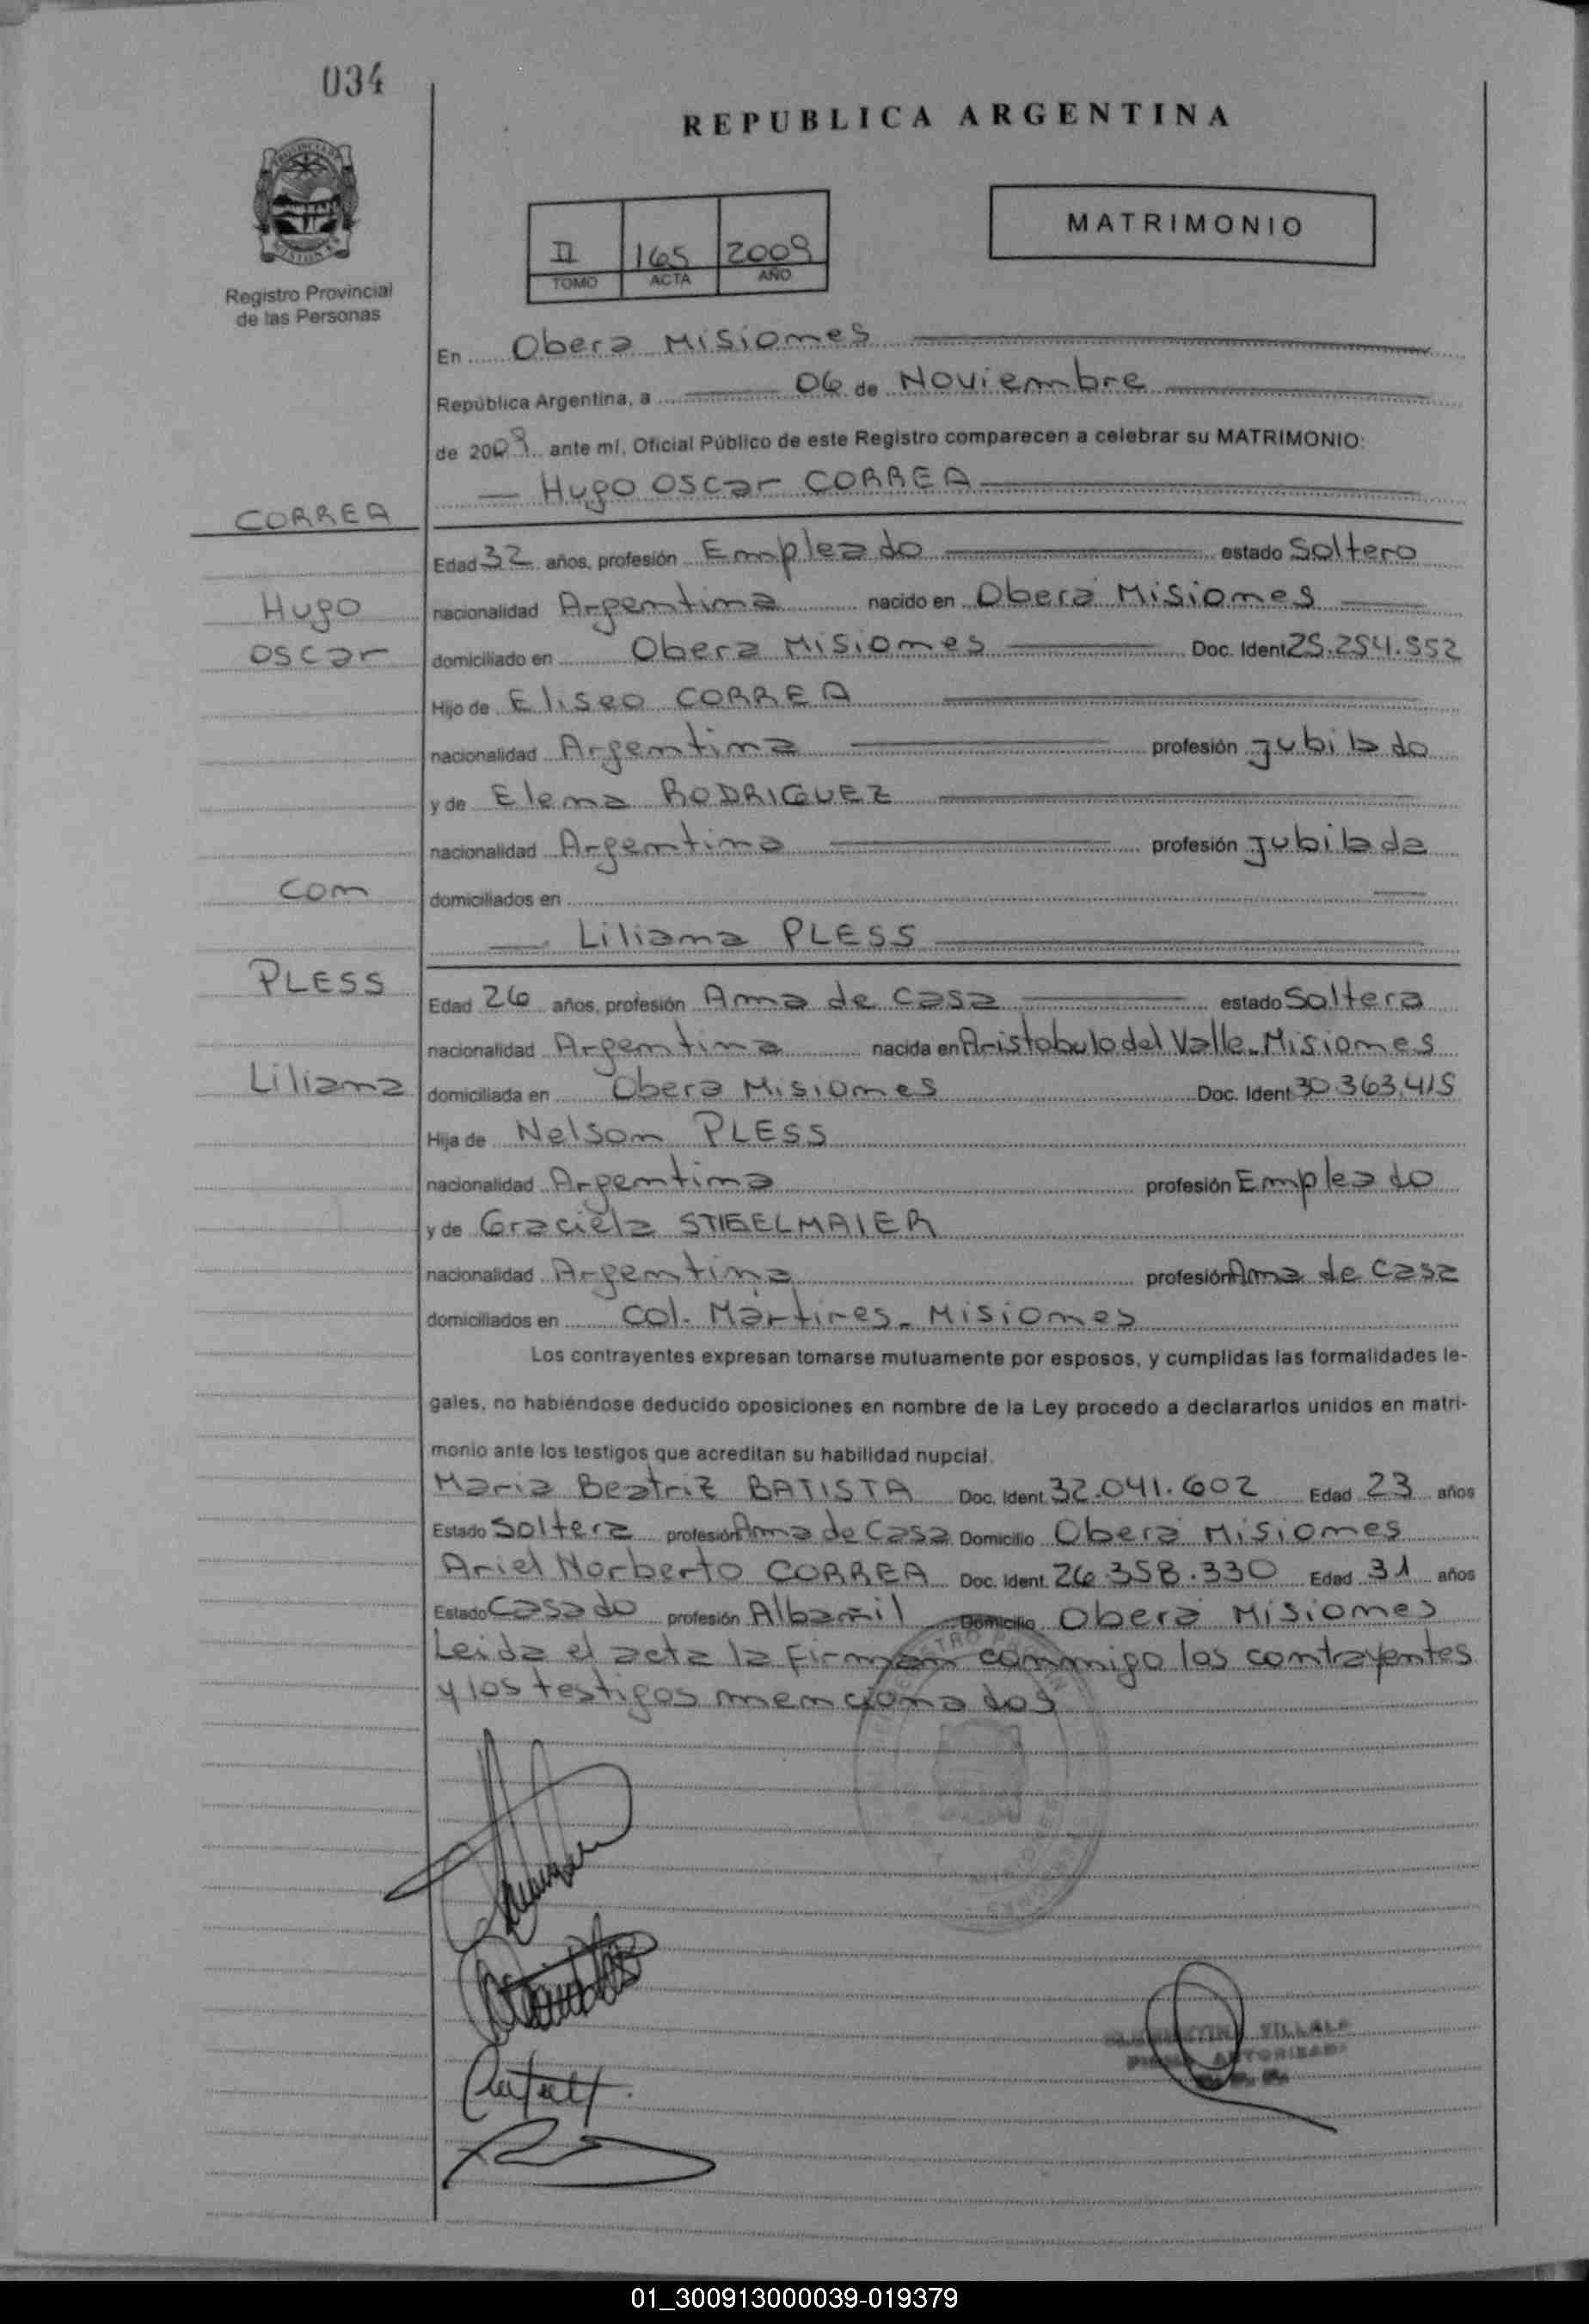 034
REPUBLICA ARGENTINA
MATRIMONIO
II 165 2009
TOMO ACTA AÑO
Registro Provincial
de las Personas
En Obera Misiones
República Argentina, a 06 de Noviembre
de 2009 ante mí, Oficial Público de este Registro comparecen a celebrar su MATRIMONIO:
Hugo Oscar CORREA
CORREA
Edad 32 años, profesión Empleado estado Soltero
Hugo
nacionalidad Argentina nacido en Oberá Misiones
Oscar
domiciliado en Obera Misiones Doc. Ident 25.254.552
Hijo de Eliseo CORREA
nacionalidad Argentina profesión Jubilado
y de Elena RODRIGUEZ
nacionalidad Argentina profesión Jubilada
con
domiciliados en
Liliana PLESS
PLESS
Edad 26 años, profesión Ama de Casa estado Soltera
nacionalidad Argentina nacida en Aristobulo del Valle - Misiones
Liliana
domiciliada en Obera Misiones Doc. Ident 30.363.415
Hija de Nelson PLESS
nacionalidad Argentina profesión Empleado
y de Graciela STIEGELMAIER
nacionalidad Argentina profesión Ama de Casa
domiciliados en Col. Mártires - Misiones
Los contrayentes expresan tomarse mutuamente por esposos, y cumplidas las formalidades le-
gales, no habiéndose deducido oposiciones en nombre de la Ley procedo a declararlos unidos en matri-
monio ante los testigos que acreditan su habilidad nupcial.
Maria Beatriz BATISTA Doc. Ident. 32.041.602 Edad 23 años
Estado Soltera profesión Ama de Casa Domicilio Oberá Misiones
Ariel Norberto CORREA Doc. Ident. 26.358.330 Edad 31 años
Estado Casado profesión Albañil Domicilio Oberá Misiones
Leida el acta la firman conmigo los contrayentes
y los testigos mencionados
VILLALA
AUTORIZADA
01_300913000039-019379